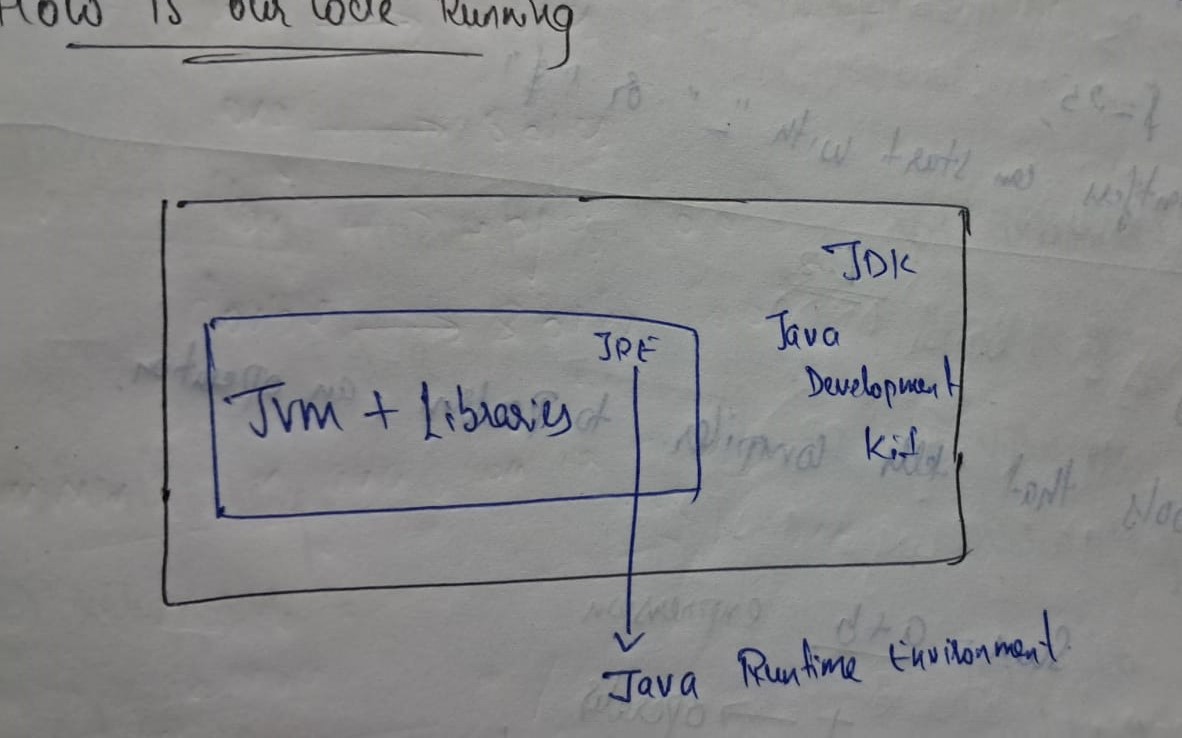 How is our code Running
JDK
Java
Development
Kit
JRE
Jvm + Libraries
Java Runtime Environment